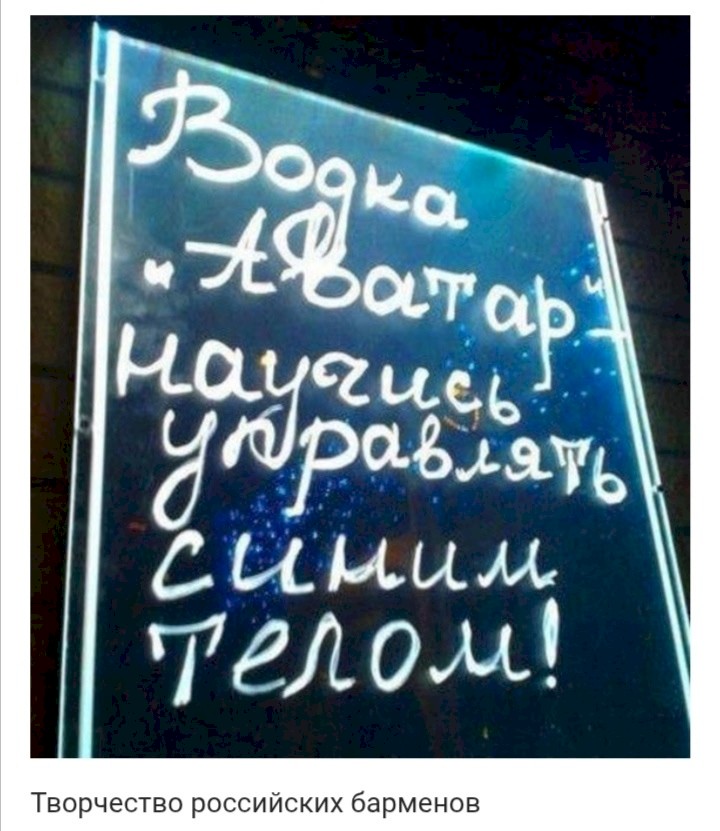 Водка
"Аватар"-
научись
управлять
синим
телом!
Творчество российских барменов